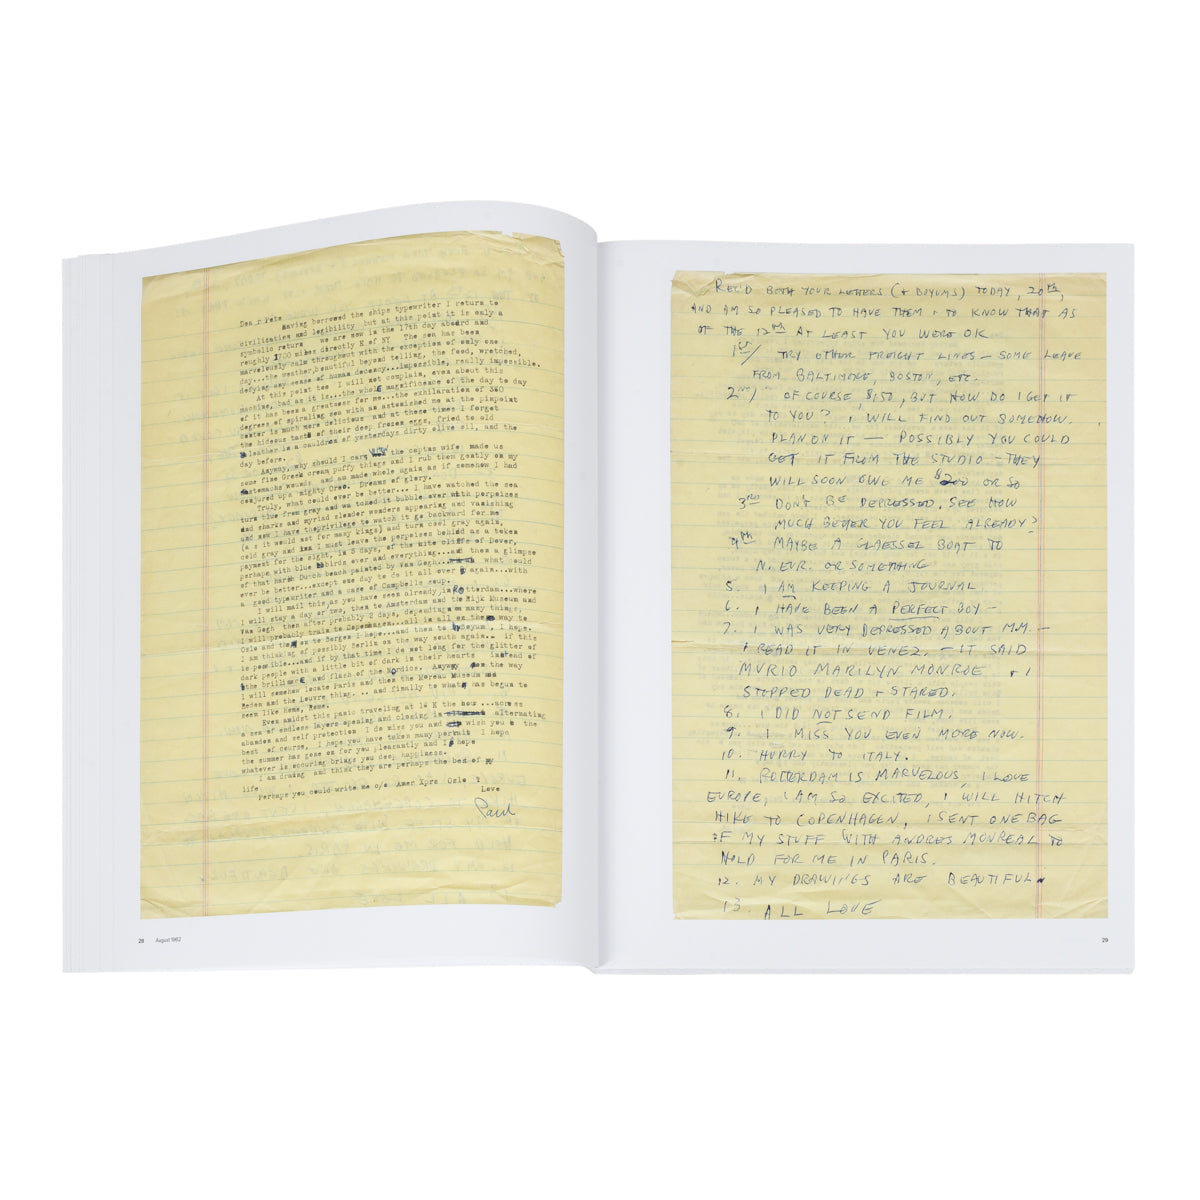 Dea r Pete
Having borrowed the ships typewriter I return to
civilization and legibility but at this point it is only a
symbolic return we are now in the 17th day aboard and
roughly 1700 miles directly E of NY The sea has been
marvelously calm throughout with the exception of only one
day...the weather,beautiful beyond telling, the food, wretched,
defying any sense of human decency...impossible, really impossible.
At this point too I will not complain, even about this
machine, bad as it is...the whole magnificence of the day to day
of it has been a greatness for me...the exhilaration of 360
degrees of spiraling sea with an astonished me at the pinpoint
center is much more delicious and at these times I forget
the hideous taste of their deep frozen eggs, fried to old
leather in a cauldron of yesterdays dirty olike oil, and the
day before.
Anyway, why should I care the captns wife made us
some fine Greek cream puffy things and I rub them gently on my
stomachs wounds and am made whole again as if somehow I had
conjured up a mighty Oreo. Dreams of glory.
Truly, what could ever be better... I have watched the sea
turn blue from gray and wa tched it bubble over with porpoises
and sharks and myriad slender wonders appearing and vanishing
and now I have theprivilege to watch it go backward for me
(a s it would not for many kings) and turn cool gray again,
cold gray and I must leave the porpoises behind as a token
payment for the sight, in 5 days, of the wite cliffs of Dover,
perhaps with blue birds over and everything...and then a glimpse
of that harsh Dutch beach painted by Van Gogh... what could
ever be better...except one day to do it all over again...with
a good typewriter and a cage of Campbells soup.
I will mail this as you have seen already in Rotterdam...where
I will stay a day or two, then to Amsterdam and the Rijk Museum and
Van Gogh then after probably 2 days, depending on many things,
I will probably train to Copenhagen...all in all on the way to
Oslo and then on to Bergen I hope...and then to Boyum, I hope.
I am thinking of possibly Berlin on the way south again... if this
is possible...and if by that time I do not long for the glitter of
dark people with a little bit of dark in their hearts instead of
the brilliance and flash of the Nordics. Anyway on the way
I will somehow locate Paris and then the Moreau Museum and
Redon and the Louvre thing. .. and finally to what has begun to
seem like home, Rome.
Even amidst this panic traveling at 14 K the hour ...across
a sea of endless layers opening and closing in alternating
abandon and self protection I do miss you and wish you the
best of course, I hope you have taken many portrait I hope
the summer has gone on for you pleasantly and I hope
whatever is occuring brings you deep happiness.
I am drawing and think they are perhaps the best of my
life
Perhaps you could write me c/o Amer Xprs Oslo ?
Love
Paul
28 August 1962
REC'D BOTH YOUR LETTERS (+ BOYUMS) TODAY, 20th,
AND AM SO PLEASED TO HAVE THEM + TO KNOW THAT AS
OF THE 12th AT LEAST YOU WERE OK
1st/ TRY OTHER FREIGHT LINES – SOME LEAVE
FROM BALTIMORE, BOSTON, ETC.
2nd/ OF COURSE, $150, BUT HOW DO I GET IT
TO YOU? I WILL FIND OUT SOMEHOW.
PLAN ON IT — POSSIBLY YOU COULD
GET IT FROM THE STUDIO – THEY
WILL SOON OWE ME $200 OR SO
3rd DON'T BE DEPRESSED, SEE HOW
MUCH BETTER YOU FEEL ALREADY?
4th MAYBE A BOAT TO
N. EUR. OR SOMETHING
5. I AM KEEPING A JOURNAL
6. I HAVE BEEN A PERFECT BOY –
7. I WAS VERY DEPRESSED ABOUT M.M. –
I READ IT IN VENEZ. – IT SAID
MVRIO MARILYN MONROE + I
STOPPED DEAD + STARED.
8. I DID NOT SEND FILM.
9. I MISS YOU EVEN MORE NOW.
10. HURRY TO ITALY.
11. ROTTERDAM IS MARVELOUS, I LOVE
EUROPE, I AM SO EXCITED, I WILL HITCH
HIKE TO COPENHAGEN, I SENT ONE BAG
OF MY STUFF WITH ANDRES MONREAL TO
HOLD FOR ME IN PARIS.
12. MY DRAWINGS ARE BEAUTIFUL.
13. ALL LOVE
29